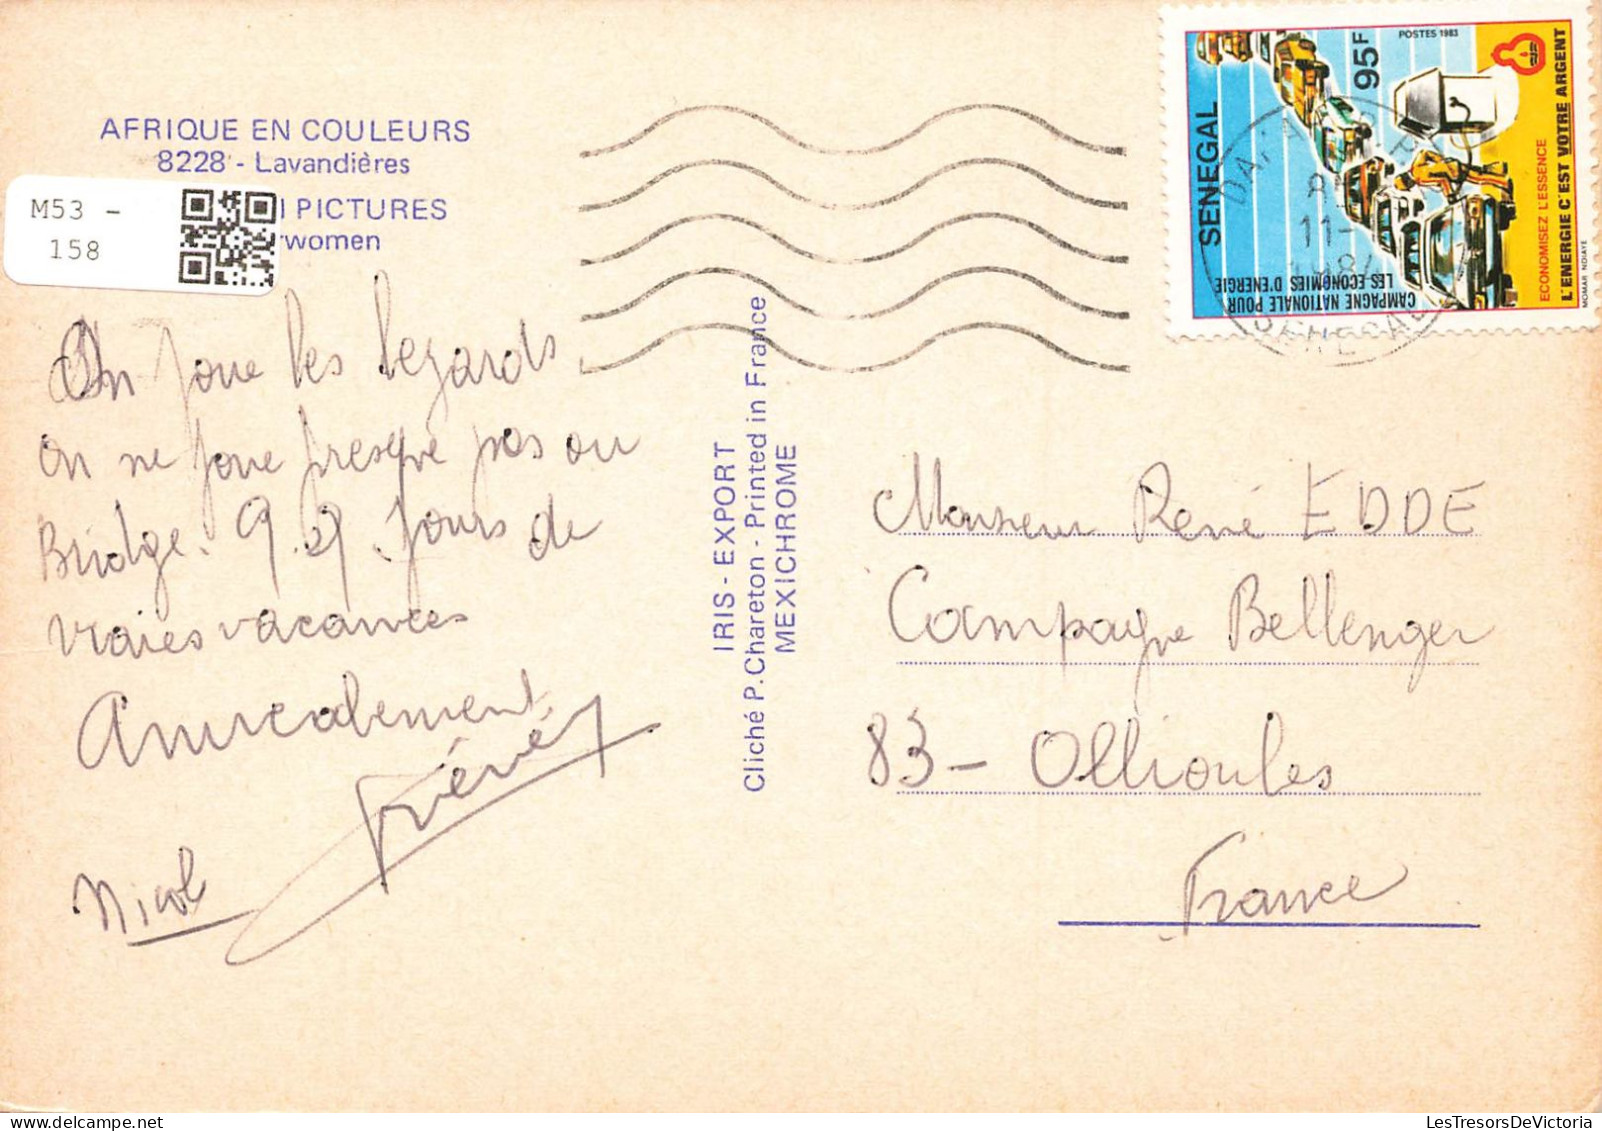 AFRIQUE EN COULEURS
8228 - Lavandières
PICTURES
women
M53 -
158
On joue les legards
on ne joue presque pas au
Bridge. 9 jours de
vraies vacances
Amicalement
Nicol
IRIS - EXPORT
Cliché P. Chareton - Printed in France
MEXICHROME
POSTES 1983
95F
SENEGAL
CAMPAGNE NATIONALE POUR
LES ECONOMIES D'ENERGIE
ECONOMISEZ L'ESSENCE
L'ENERGIE C'EST VOTRE ARGENT
MOMAR NDIAYE
11-
SENEGAL
Monsieur René EDDE
Campagne Bellenger
83 - Ollioules
France
LesTresorsDeVictoria